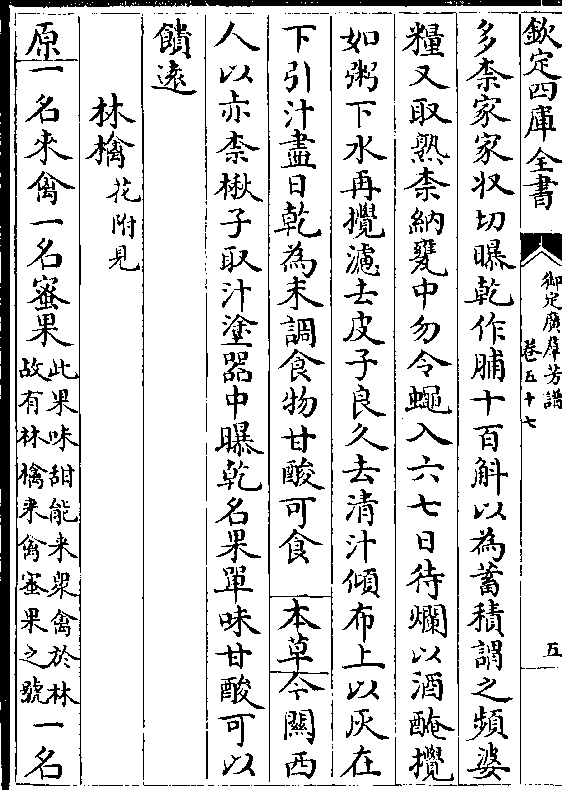 欽定四庫全書
御定廣羣芳譜
卷五十七
五
多柰家家收切曝乾作脯十百斛以為蓄積謂之頻婆
糧又取熟柰納甕中勿令蠅入六七日待爛以酒醃攪
如粥下水再攪濾去皮子良久去清汁傾布上以灰在
下引汁盡日乾為末調食物甘酸可食 本草今關西
人以赤柰楸子取汁塗器中曝乾名果單味甘酸可以
饋遠
林檎花附見
原一名來禽一名蜜果此果味甜能来衆禽於林故有林檎来禽蜜果之號一名